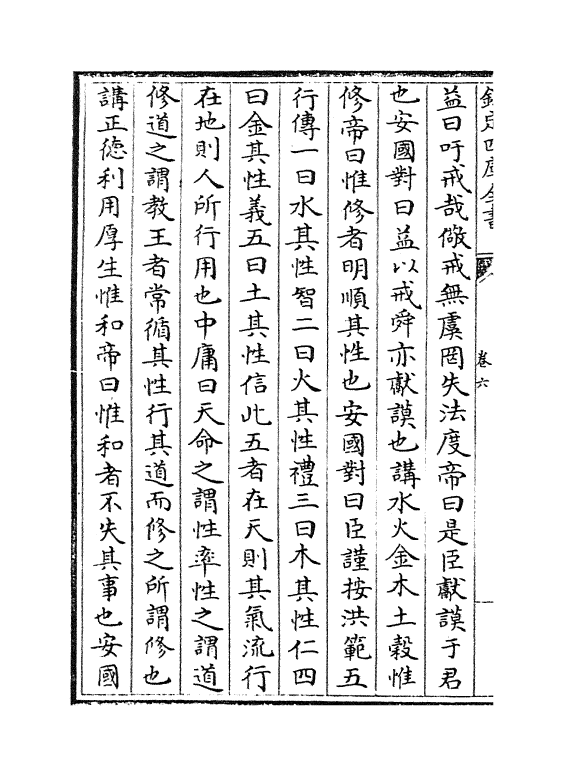 欽定四庫全書
卷六
益曰吁戒哉儆戒無虞罔失法度帝曰是臣獻謨于君
也安國對曰益以戒舜亦獻謨也講水火金木土穀惟
修帝曰惟修者明順其性也安國對曰臣謹按洪範五
行傳一曰水其性智二曰火其性禮三曰木其性仁四
曰金其性義五曰土其性信此五者在天則其氣流行
在地則人所行用也中庸曰天命之謂性率性之謂道
修道之謂教王者常循其性行其道而修之所謂修也
講正德利用厚生惟和帝曰惟和者不失其事也安國